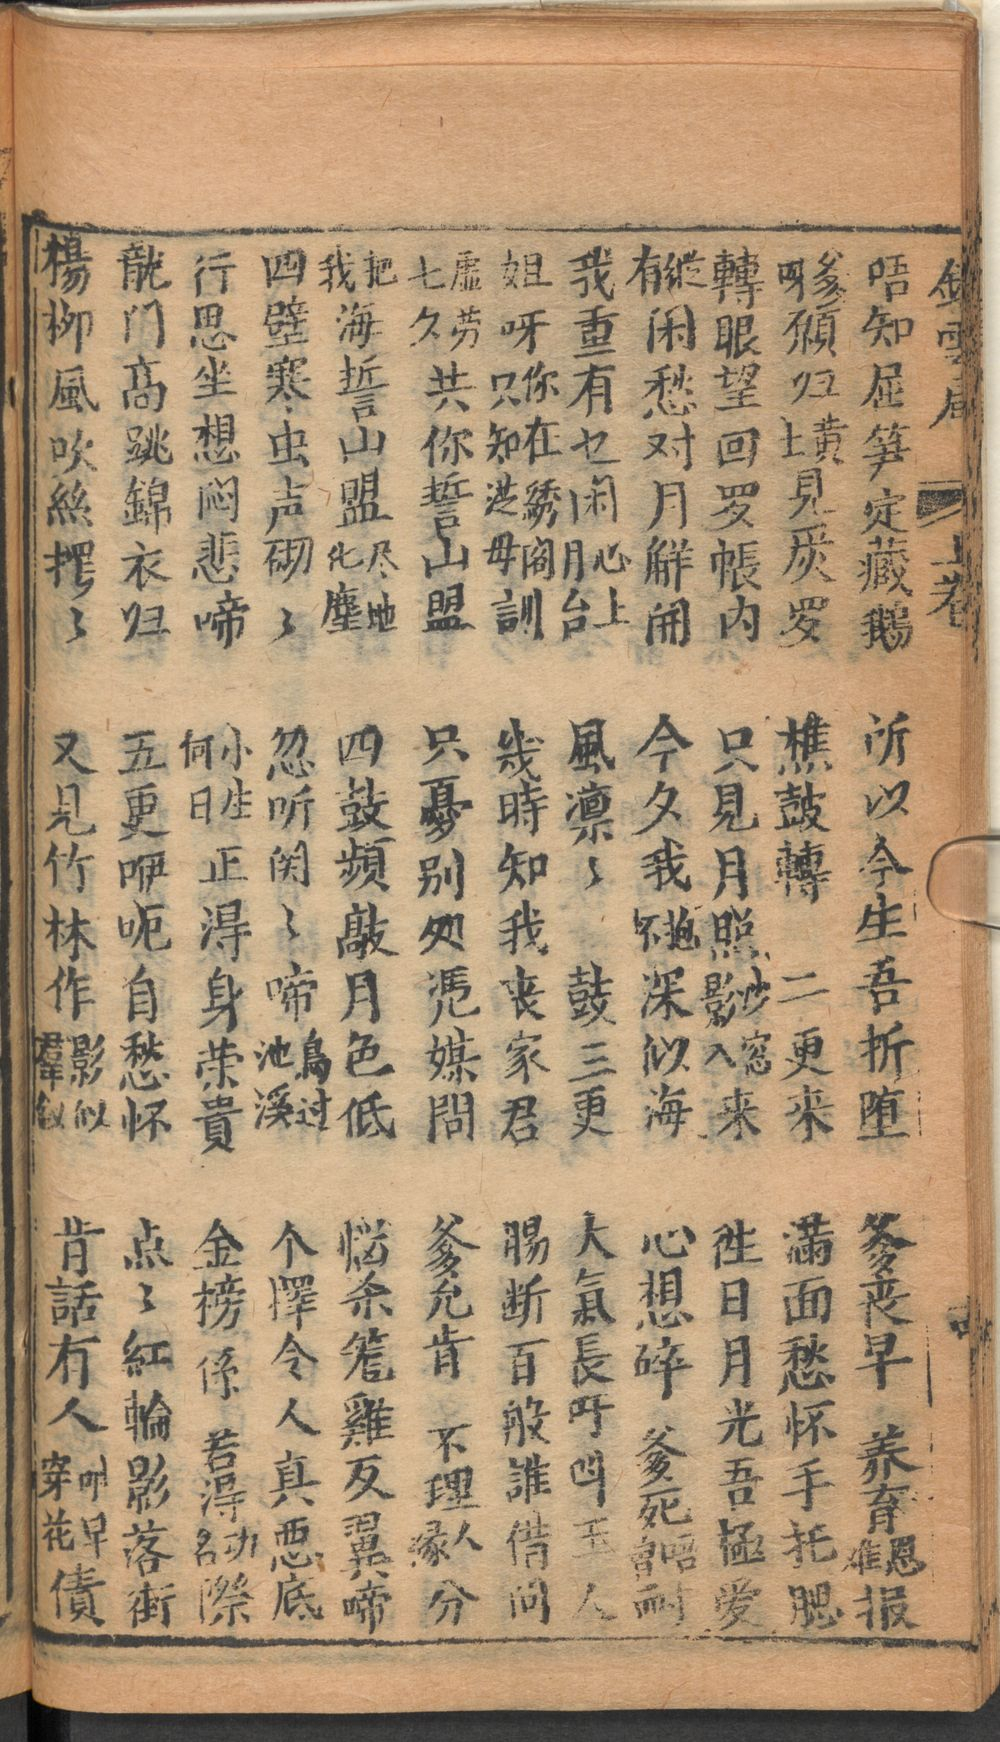 上卷
唔知屈笋定藏鵝 所以今生吾折堕 爹丧早 养育恩难报
爹呀須归黄土見炭罗 樵鼓轉 二更來 满面愁怀手托腮
轉眼望回罗帳內 只見月照紗窓影入来 性日月光吾極爱
縱有闲愁对月觧開 今夕我抱不深似海 心想碎 爹死唔曾耐
我重有乜闲心上月台 風凛〻 鼓三更 大氣長吁叫玉人
姐呀你在綉阁只知遊母訓 幾時知我丧家君 腸断百般誰借问
虚劳七久共你誓山盟 只憂别处凴媒問 爹允肯 不理人缘分
把我海誓山盟尽地化塵 四鼓頻敲月色低 惱杀笼雞反翼啼
四壁寒虫声砌〻 忽听関〻啼鳥过池溪 个陣令人真恶底
行思坐想悶悲啼 小生何日正淂身荣貴 金榜係 若淂功名際
龍门高跳錦衣归 五更咿呃自愁怀 点〻紅輪影落街
楊柳風吹絲擺〻 又見竹林作影似羣釵 肯話有人呌早穿花債